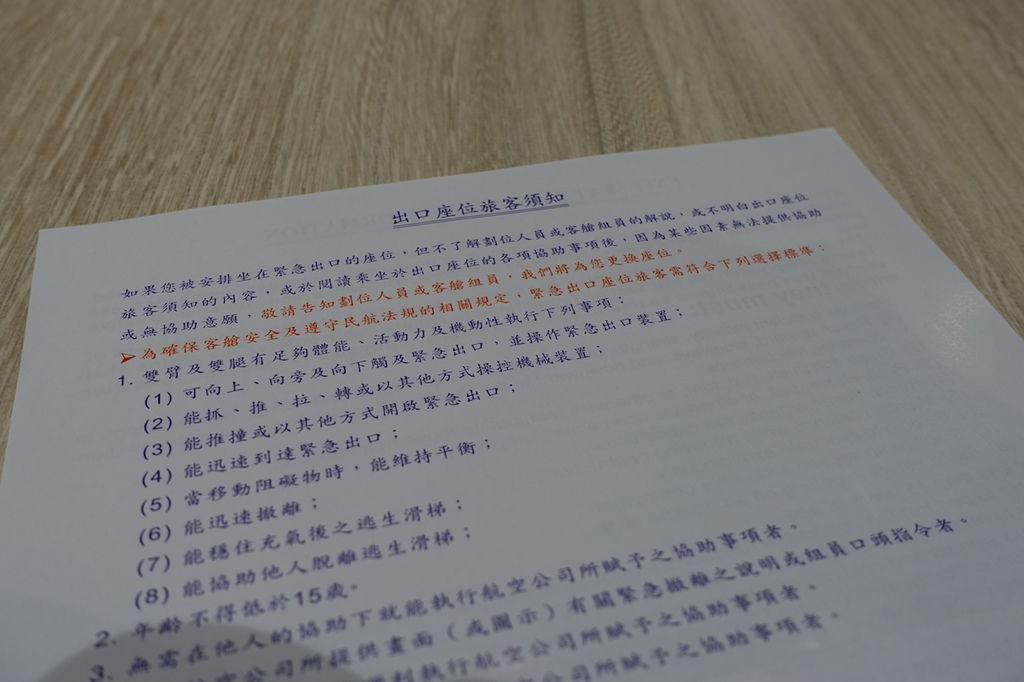 出口座位旅客須知
如果您被安排坐在緊急出口的座位，但不了解劃位人員或客艙組員的解說，或不明白出口座位
旅客須知的內容，或於閱讀乘坐於出口座位的各項協助事項後，因為某些因素無法提供協助
或無協助意願，敬請告知劃位人員或客艙組員，我們將為您更換座位。
➤為確保客艙安全及遵守民航法規的相關規定，緊急出口座位旅客當符合下列選擇標準：
1. 雙臂及雙腿有足夠體能、活動力及機動性執行下列事項：
(1) 可向上、向旁及向下觸及緊急出口，並操作緊急出口裝置；
(2) 能抓、推、拉、轉或以其他方式操控機械裝置；
(3) 能推撞或以其他方式開啟緊急出口；
(4) 能迅速到達緊急出口；
(5) 當移動阻礙物時，能維持平衡；
(6) 能迅速撤離；
(7) 能穩住充氣後之逃生滑梯；
(8) 能協助他人脫離逃生滑梯；
2. 年齡不得低於15歲。
3. 無需在他人的協助下就能執行航空公司所賦予之協助事項者。
空公司所提供畫面（或圖示）有關緊急撤離之說明或組員口頭指令者。
利執行航空公司所賦予之協助事項者。
司所賦予之協助事項者。